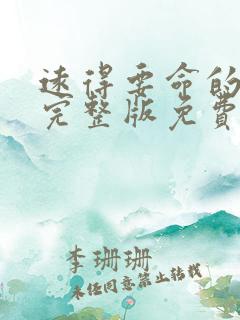 遠得要命的
完整版免費
李珊珊
未任同意禁止转载